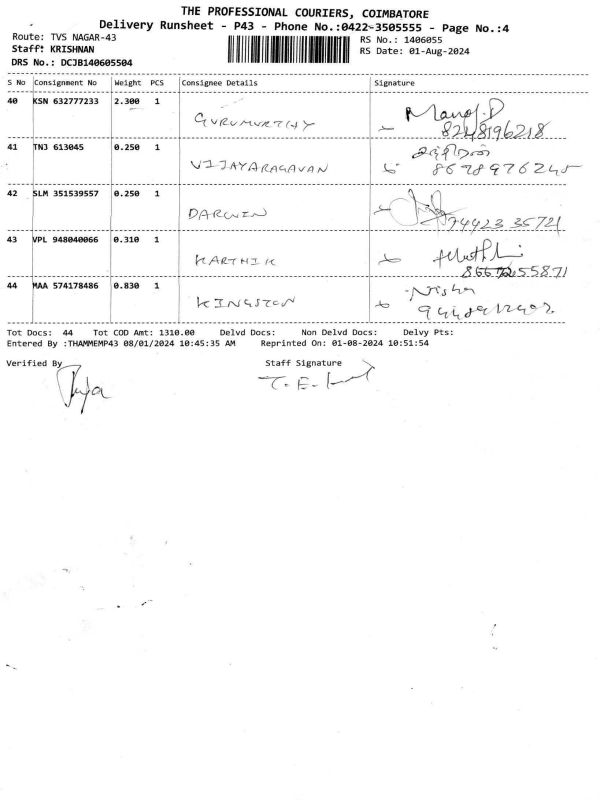 THE PROFESSIONAL COURIERS, COIMBATORE
Delivery Runsheet - P43 - Phone No.:0422-3505555 - Page No.:4
Route: TVS NAGAR-43
RS No.: 1406055
Staff: KRISHNAN
RS Date: 01-Aug-2024
DRS No.: DCJB140605504
S No Consignment No Weight PCS Consignee Details Signature
40 KSN 632777233 2.300 1 GURUMURTHY Manoj.P
8248196218
41 TNJ 613045 0.250 1 VIJAYARAGAVAN
8678976245
42 SLM 351539557 0.250 1 DARWIN
74423 35721
43 VPL 948040066 0.310 1 KARTHIK
44 MAA 574178486 0.830 1 KINGSTON Nisha
Tot Docs: 44 Tot COD Amt: 1310.00 Delvd Docs: Non Delvd Docs: Delvy Pts:
Entered By :THAMMEMP43 08/01/2024 10:45:35 AM Reprinted On: 01-08-2024 10:51:54
Verified By Staff Signature